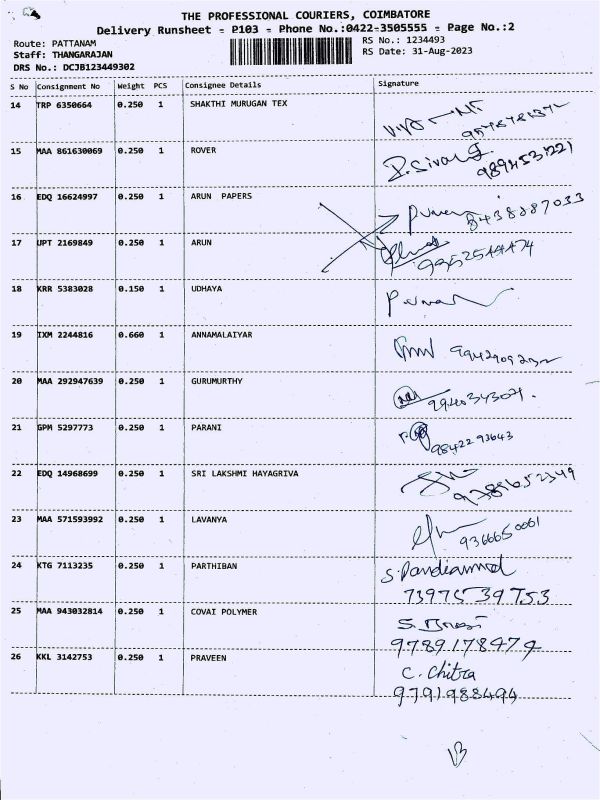 THE PROFESSIONAL COURIERS, COIMBATORE
Delivery Runsheet - P103 - Phone No.:0422-3505555 - Page No.:2
Route: PATTANAM RS No.: 1234493
Staff: THANGARAJAN RS Date: 31-Aug-2023
DRS No.: DCJB123449302
S No Consignment No Weight PCS Consignee Details Signature
14 TRP 6350664 0.250 1 SHAKTHI MURUGAN TEX
15 MAA 861630069 0.250 1 ROVER
9894531221
16 EDQ 16624997 0.250 1 ARUN PAPERS
8438887033
17 UPT 2169849 0.250 1 ARUN
18 KRR 5383028 0.150 1 UDHAYA
19 IXM 2244816 0.660 1 ANNAMALAIYAR
20 MAA 292947639 0.250 1 GURUMURTHY
21 GPM 5297773 0.250 1 PARANI
9842293643
22 EDQ 14968699 0.250 1 SRI LAKSHMI HAYAGRIVA
23 MAA 571593992 0.250 1 LAVANYA
9366650061
24 KTG 7113235 0.250 1 PARTHIBAN
7397539753
25 MAA 943032814 0.250 1 COVAI POLYMER
9789178474
26 KKL 3142753 0.250 1 PRAVEEN C. Chitra
9791988494